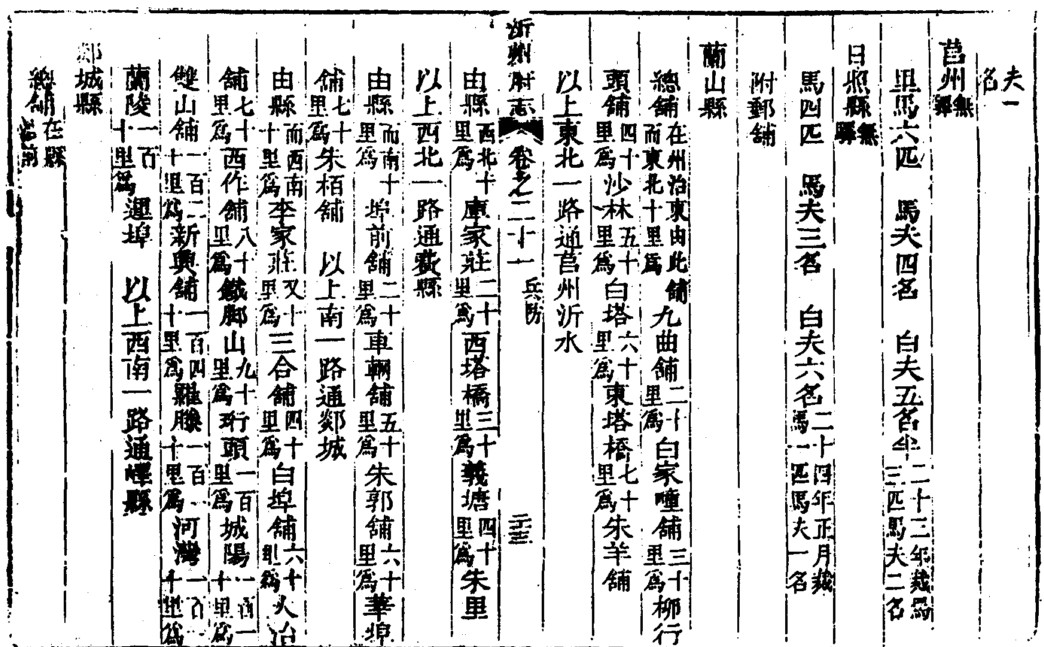 夫一名
莒州無驛
里馬六匹　馬夫四名　白夫五名半二十三年裁馬三匹馬夫二名
日照縣無驛
馬四匹　馬夫三名　白夫六名二十四年正月裁馬一匹馬夫一名
附郵舖
蘭山縣
總舖在州治東由此舖而東北十里爲九曲舖二十里爲白家疃舖三十里爲柳行
頭舖四十里爲沙林五十里爲白塔六十里爲東塔橋七十里爲朱羊舖
以上東北一路通莒州沂水
沂州府志　卷之二十一　兵防
由縣西北十里爲庫家莊二十里爲西塔橋三十里爲義塘四十里爲朱里
以上西北一路通費縣
由縣而南十里爲埠前舖二十里爲車輞舖五十里爲朱郭舖六十里爲華埠
舖七十里爲朱栢舖　以上南一路通郯城
由縣而西南十里爲李家莊又十里爲三合舖四十里爲白埠舖六十里爲大冶
舖七十里爲西作舖八十里爲鐵脚山九十里爲珩頭一百里爲城陽一百一十里爲
雙山舖一百二十里爲新興舖一百四十里爲羅滕一百十里爲河灣一百十里爲
蘭陵一百十里爲邏埠　以上西南一路通嶧縣
郯城縣
總舖在縣治前